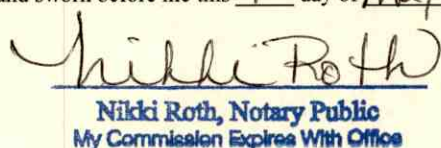 and sworn before me this day of May
Nikki Roth
Nikki Roth, Notary Public
My Commission Expires With Office